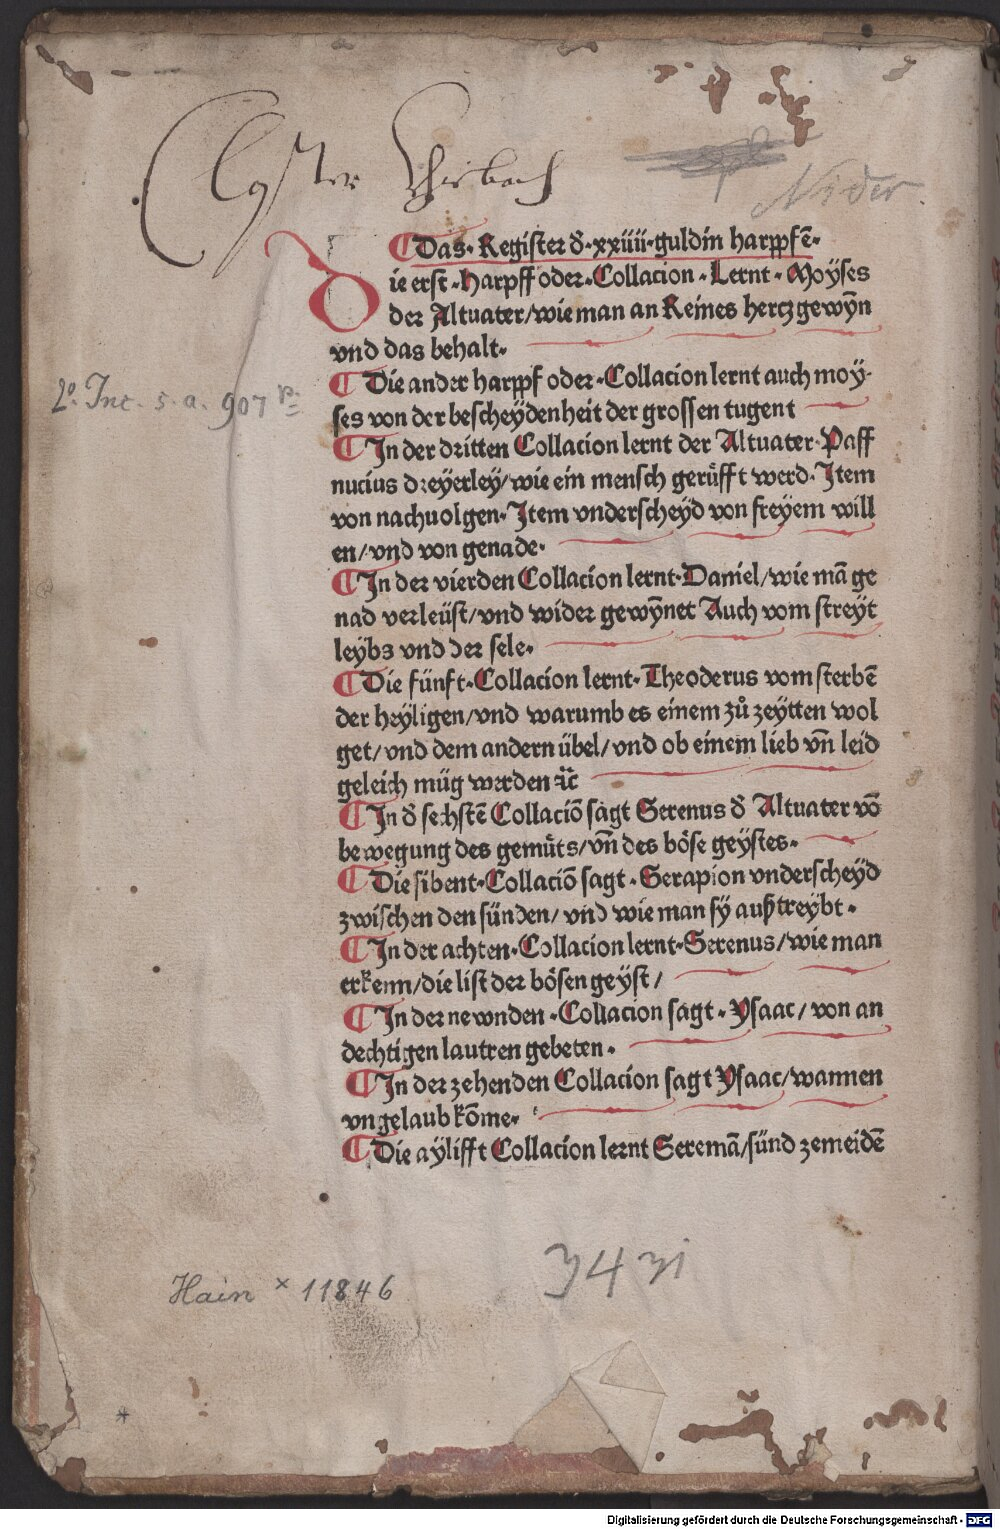 Closter Thierbach
Nider.
Das · Register d̕ · xxiiii · guldin harpfē ·
Die erst · Harpff oder · Collacion · Lernt · Moÿses
der Altuater/wie man an Reines hertz gewÿn̄
vnd das behalt ·
2° Inc. s. a. 907 p
Die ander harppf oder · Collacion lernt auch moÿ-
ses von der bescheÿdenheit der grossen tugent
In der dritten Collacion lernt der Altuater · Paff
nucius dreÿerleÿ/wie ein mensch gerüfft werd · Item
von nachuolgen · Item vnderscheÿd von freÿem will
en/vnd von genade ·
In der vierden Collacion lernt · Daniel/wie mā ge
nad verleüst/vnd wider gewÿnet Auch vom streÿt
leÿbs vnd der sele ·
Die fünft · Collacion lernt · Theoderus vom sterbē
der heÿligen/vnd warumb es einem zů zeÿtten wol
get/vnd dem andern übel/vnd ob einem lieb vn̄ leid
geleich müg werden ꝛc̄
In d̕ sechstē Collaciō sagt Serenus d̕ Altuater vō
bewegung des gemüts/vn̄ des böse geÿstes ·
Die sibent · Collaciō sagt · Serapion vnderscheÿd
zwischen den sünden/vnd wie man sÿ außtreÿbt ·
In der achten · Collacion lernt · Serenus/wie man
erkenn/die list der bösen geÿst/
In der newnden · Collacion sagt · Ysaac/von an
dechtigen lautren gebeten ·
In der zehenden Collacion sagt Ysaac/wannen
vngelaub kōme ·
Die aÿlifft Collacion lernt Seremā/sünd zemeidē
Hain × 11846
Digitalisierung gefördert durch die Deutsche Forschungsgemeinschaft - DFG